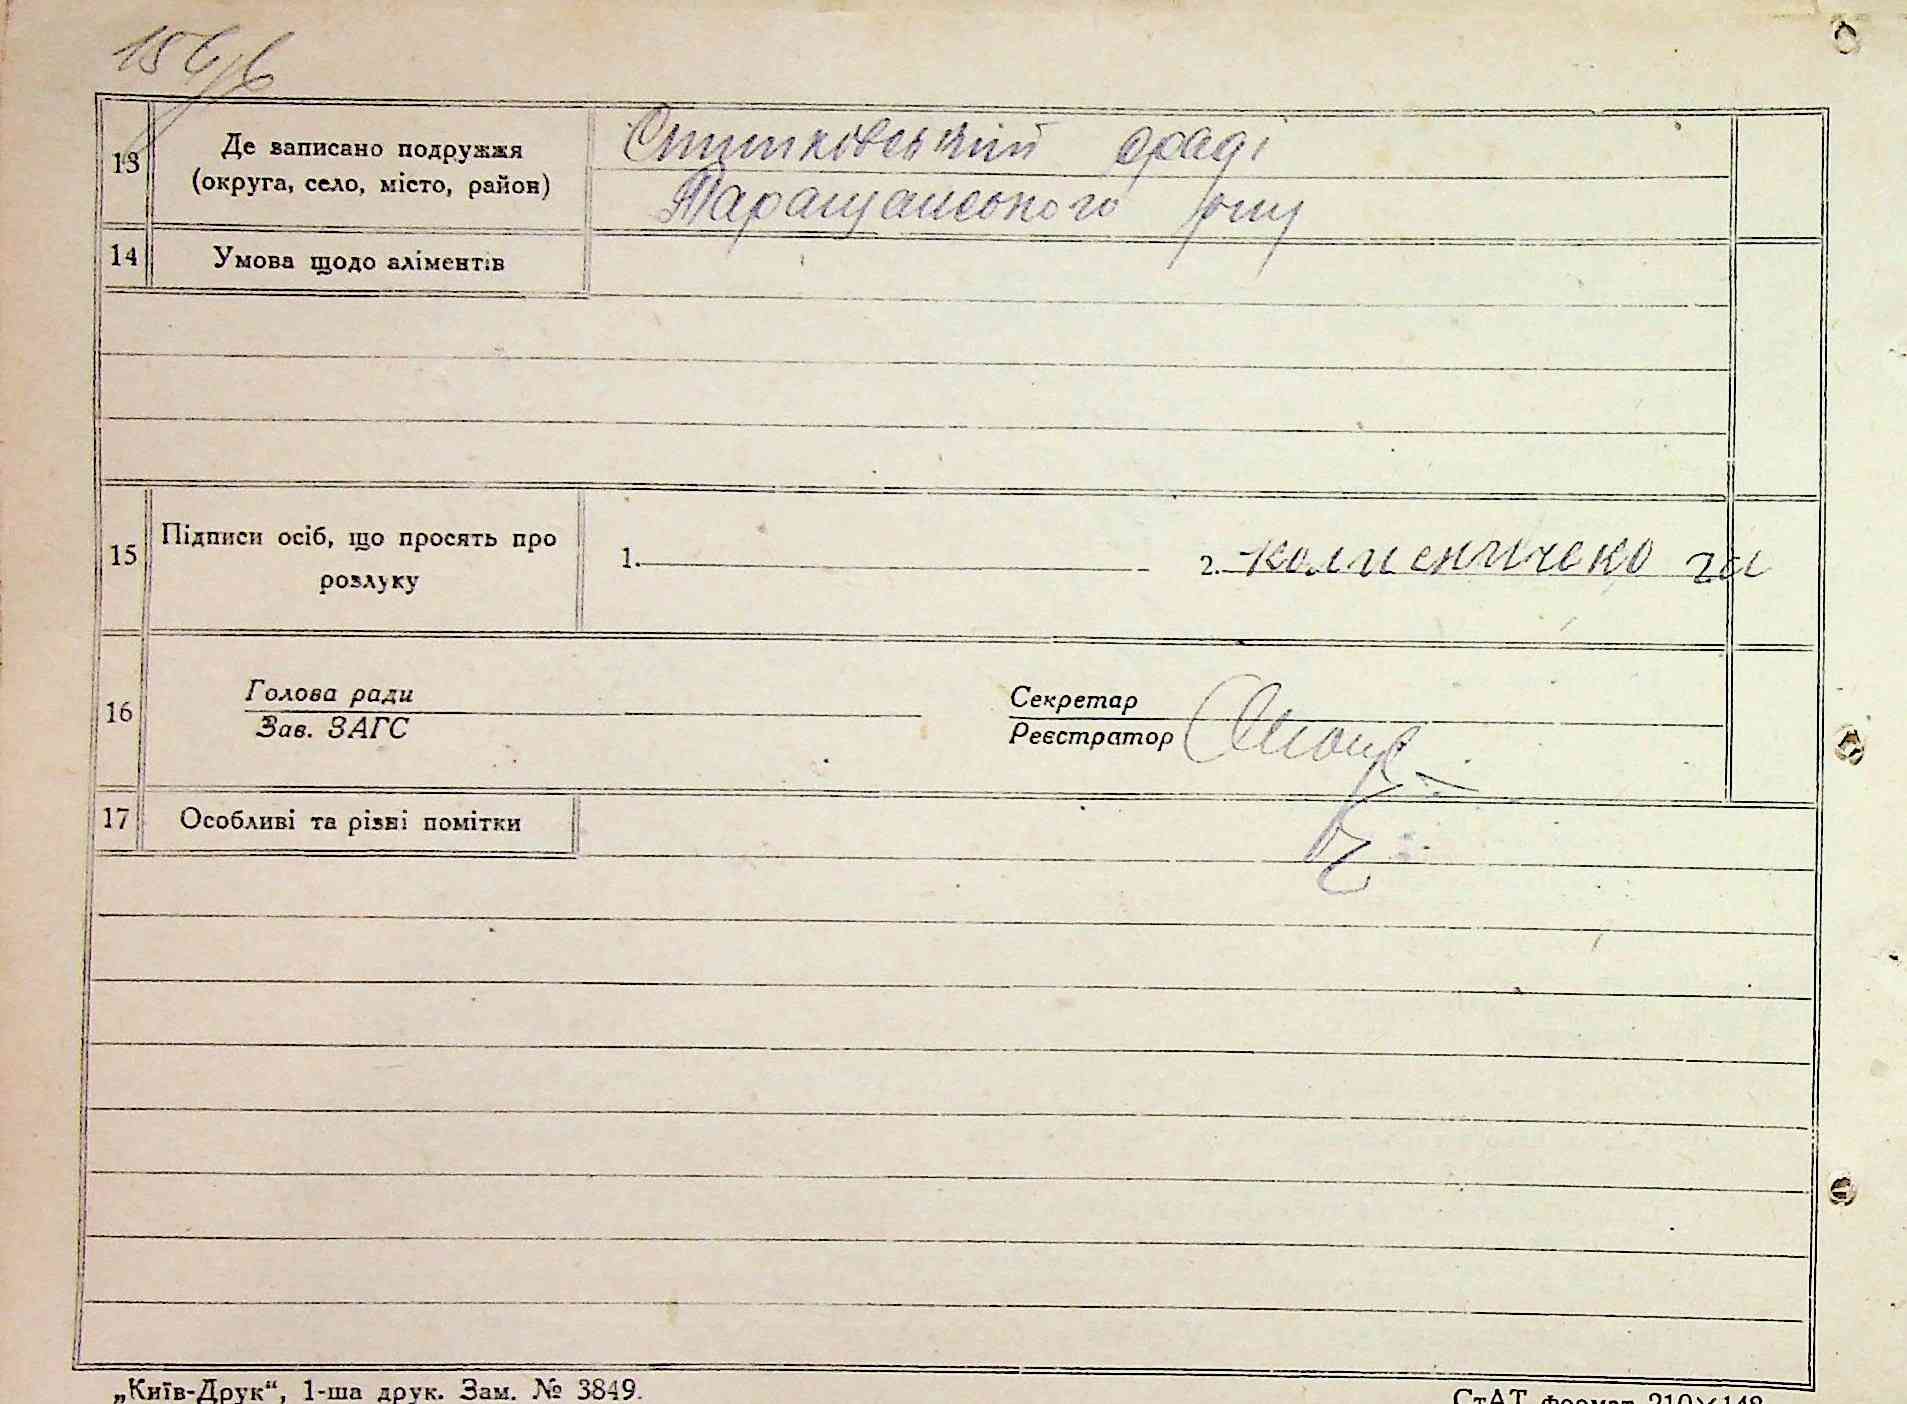 13
Де записано подружжя
(округа, село, місто, район)
Таращанського р-ну
14
Умова щодо аліментів
15
Підписи осіб, що просять про
розлуку
1.
2.
16
Голова ради
Зав. ЗАГС
Секретар
Реєстратор
17
Особливі та різні помітки
„Київ-Друк“, 1-ша друк. Зам. № 3849.
СтАТ формат 210×148